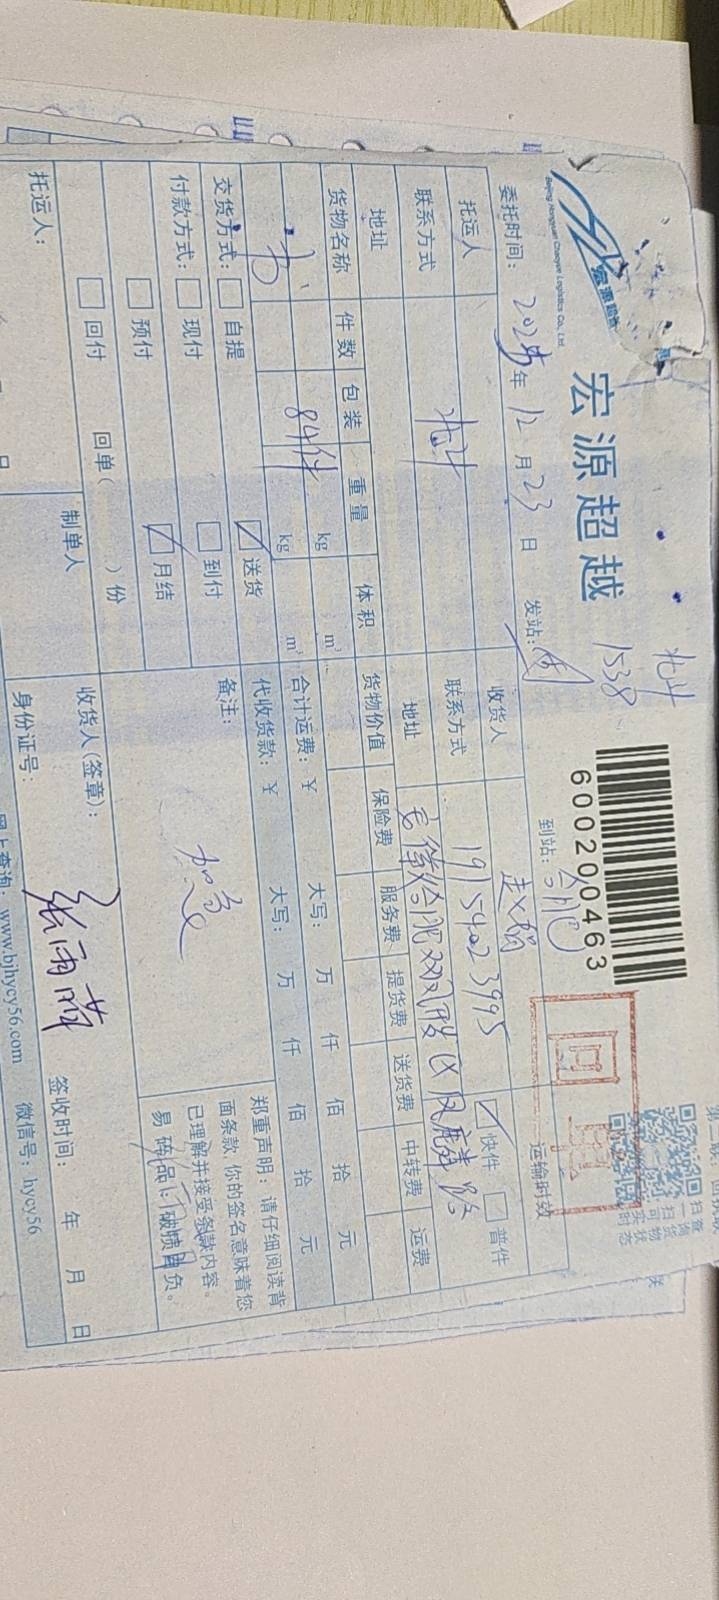 北斗
1538
宏源超越
Beijing Hongyuan Chaoyue Logistics Co., Ltd.
600200463
回单
扫一扫
委托时间: 2025年12月23日
发站:
到站: 合肥
运输时效
托运人
北斗
收货人
联系方式
联系方式
19154023995
快件
普件
地址
地址
安徽合肥双凤开发区凤麟路
货物名称
件数
包装
重量
体积
货物价值
保险费
服务费
提货费
送货费
中转费
运费
84件
kg
m³
kg
m³
合计运费: ¥
大写: 万 仟 佰 拾 元
代收货款: ¥
大写: 万 仟 佰 拾 元
交货方式:
自提
送货
付款方式:
现付
到付
预付
月结
回付
回单( )份
备注:
加急
郑重声明: 请仔细阅读背
面条款, 你的签名意味着您
已理解并接受条款内容。
易碎品, 破损自负。
托运人:
制单人
收货人(签章):
张雨萍
签收时间: 年 月 日
身份证号:
网上查询: www.bjhycy56.com
微信号: hycy56